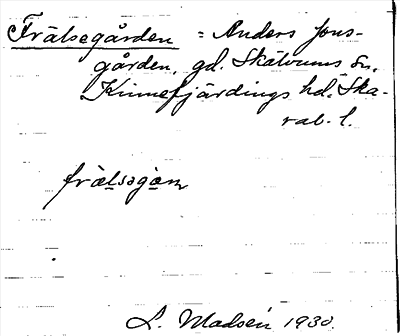 Frälsegården = Anders Jons-
gården, gd. Skälvums sn.
Kinnefjärdings hd. Ska-
rab. l.
frälsagan
L. Madsén 1930.